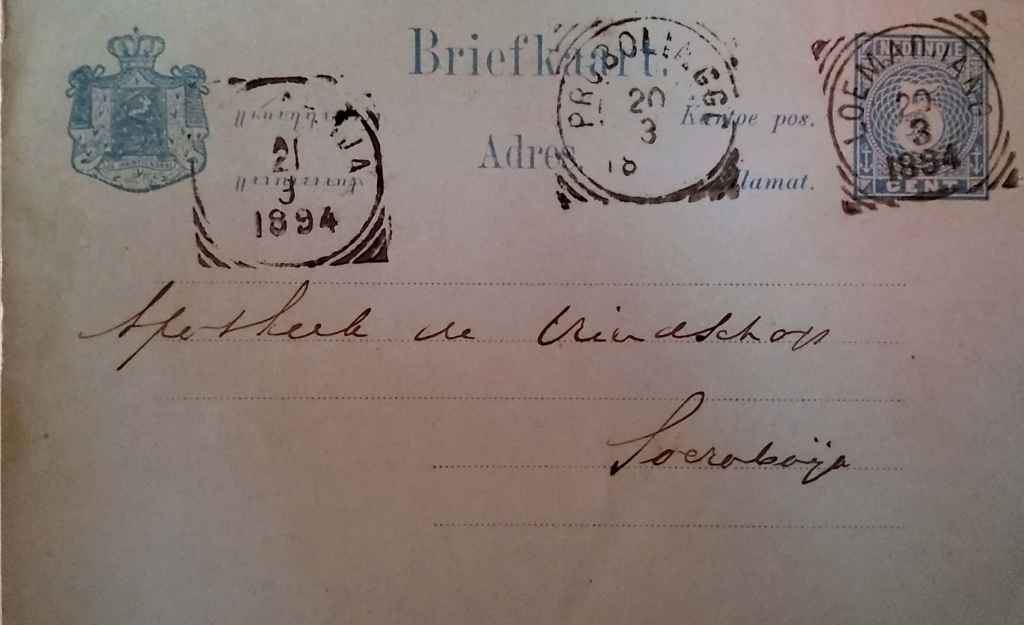 Briefkaart.
NED. INDIE
PROBOLINGGO
20
3
18
LOEMADJANG
20
3
1894
CENT
Kantoe pos.
Adres
Alamat.
21
3
1894
Apotheek de Vriendschap
Soerabaija